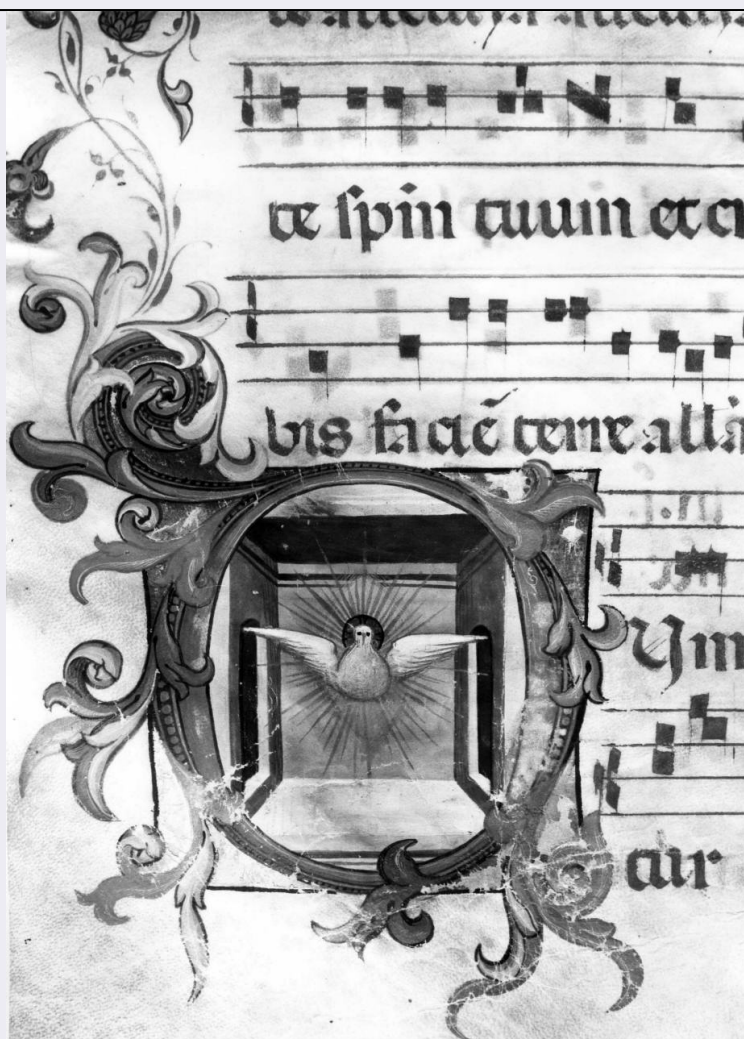 te spin tuum et cr
bis facie terre alla
Ym
tur